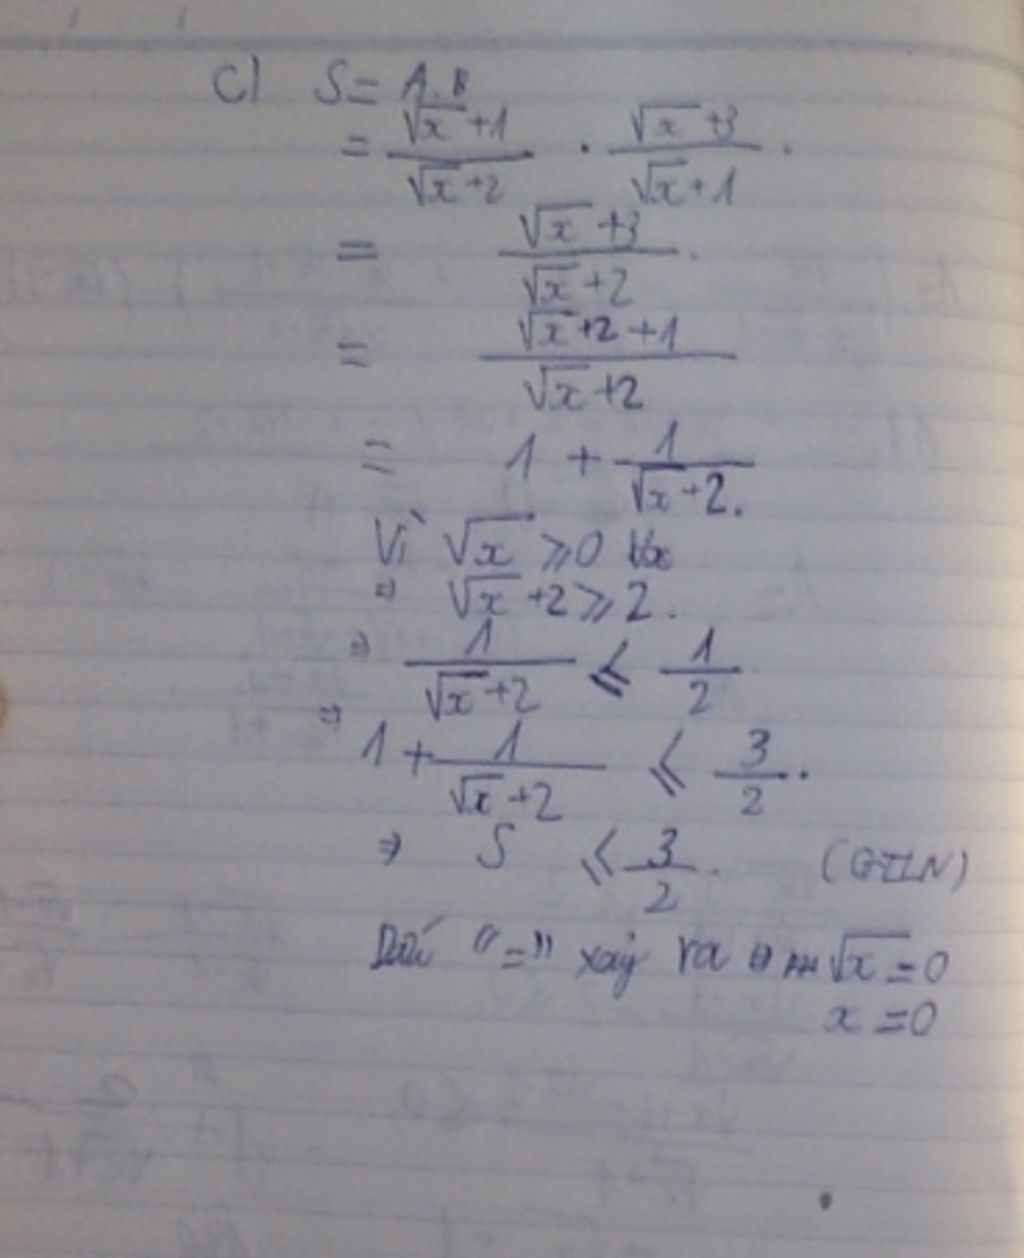 c) S = A.B
= \frac{\sqrt{x}+1}{\sqrt{x}+2} . \frac{\sqrt{x}+3}{\sqrt{x}+1} .
= \frac{\sqrt{x}+3}{\sqrt{x}+2} .
= \frac{\sqrt{x}+2+1}{\sqrt{x}+2}
= 1 + \frac{1}{\sqrt{x}+2.}
Vì \sqrt{x} ⩾ 0 ∀x
⇒ \sqrt{x}+2 ⩾ 2.
⇒ \frac{1}{\sqrt{x}+2} ⩽ \frac{1}{2}
⇒ 1 + \frac{1}{\sqrt{x}+2} ⩽ \frac{3}{2} .
⇒ S ⩽ \frac{3}{2} . (GTLN)
Dấu "=" xảy ra ⇔ \sqrt{x} = 0
x = 0